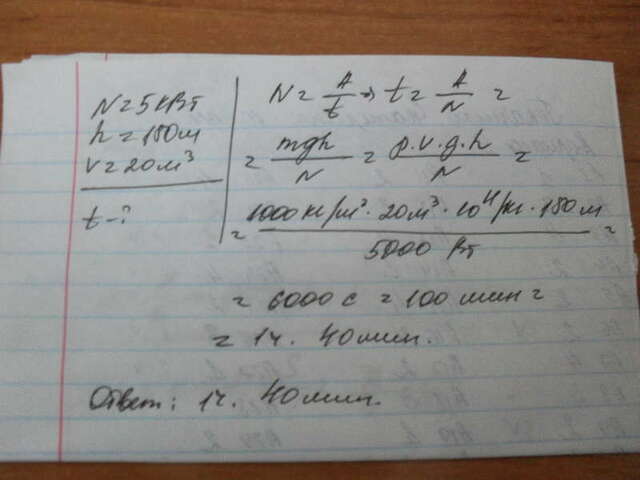 N = 5 кВт
h = 150 м
V = 20 м³
t - ?
N = A/t => t = A/N =
= mgh/N = ρ·V·g·h/N =
= 1000 кг/м³ · 20 м³ · 10 Н/кг · 150 м / 5000 Вт =
= 6000 с = 100 мин =
= 1ч. 40 мин.
Ответ: 1ч. 40 мин.